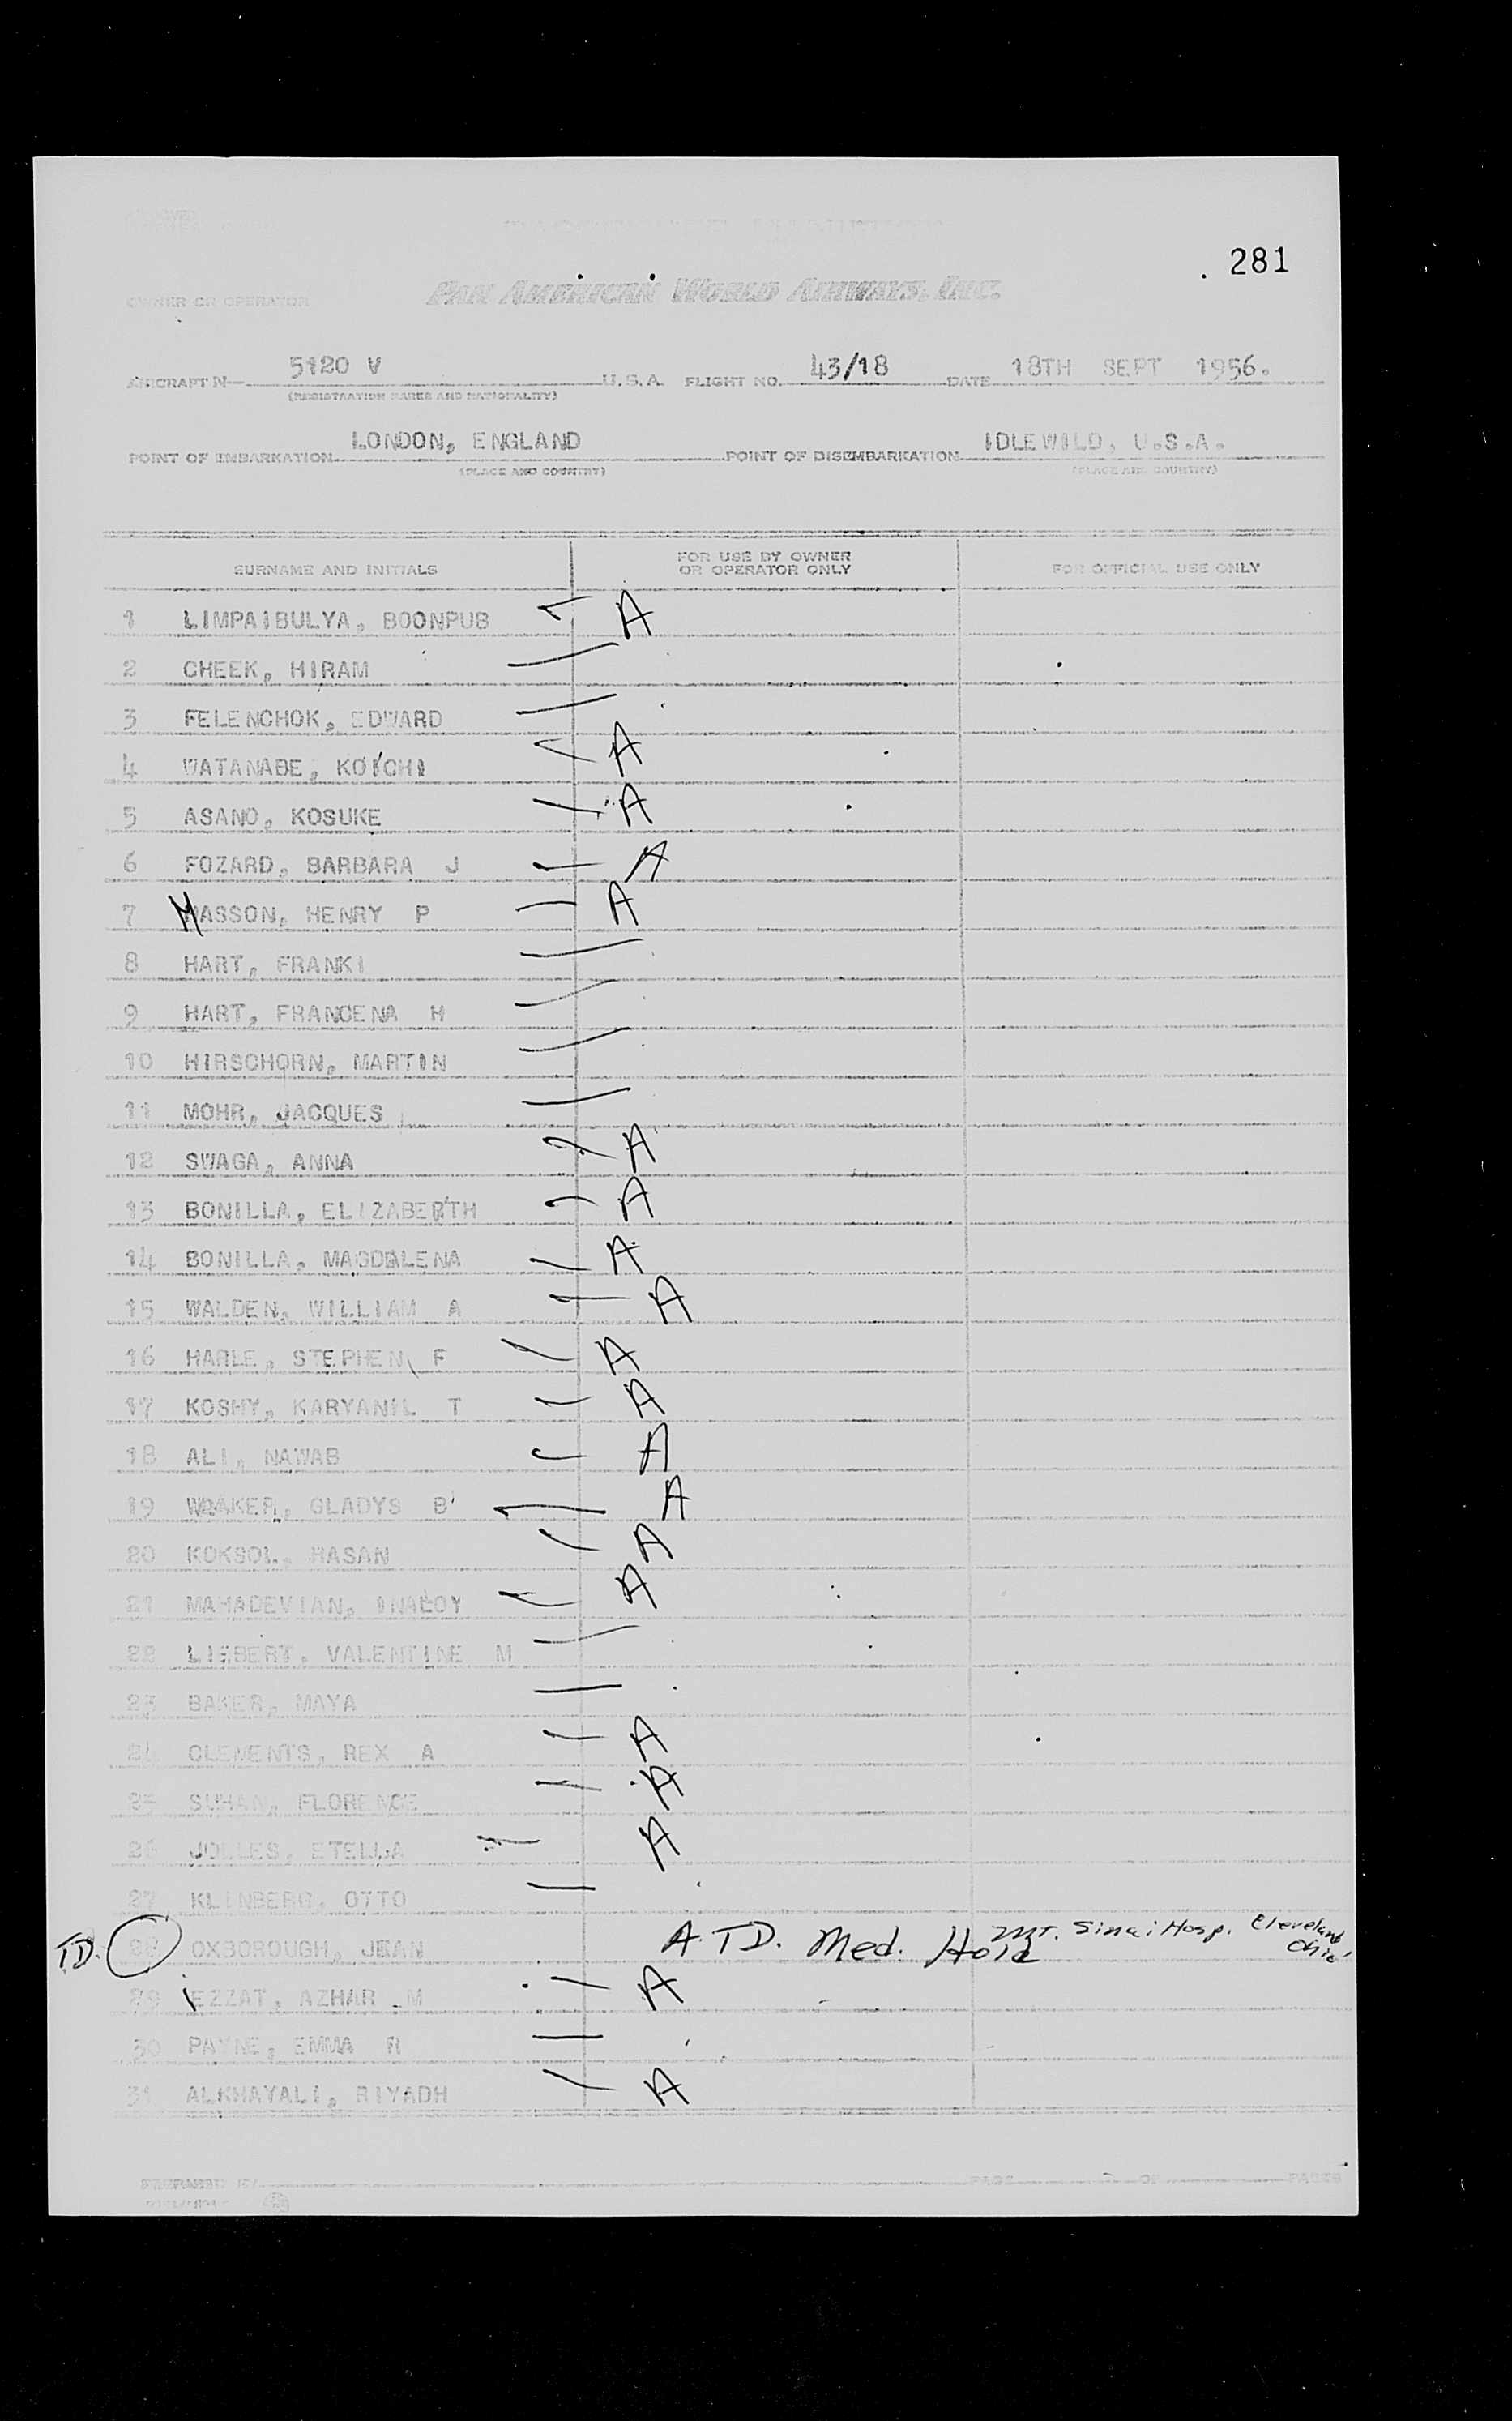 281
OWNER OR OPERATOR PAN AMERICAN WORLD AIRWAYS, INC.
AIRCRAFT N— 5120 V U.S.A. FLIGHT NO. 43/18 DATE 18TH SEPT 1956.
(REGISTRATION MARKS AND NATIONALITY)
POINT OF EMBARKATION LONDON, ENGLAND POINT OF DISEMBARKATION IDLEWILD, U.S.A.
(PLACE AND COUNTRY) (PLACE AND COUNTRY)
SURNAME AND INITIALS FOR USE BY OWNER OR OPERATOR ONLY FOR OFFICIAL USE ONLY
1 LIMPAIBULYA, BOONPUB A
2 CHEEK, HIRAM
3 FELENCHOK, EDWARD
4 WATANABE, KOICHI A
5 ASANO, KOSUKE A
6 FOZARD, BARBARA J A
7 MASSON, HENRY P A
8 HART, FRANKI
9 HART, FRANCENA H
10 HIRSCHORN, MARTIN
11 MOHR, JACQUES
12 SWAGA, ANNA A
13 BONILLA, ELIZABERTH A
14 BONILLA, MAGDALENA A
15 WALDEN, WILLIAM A A
16 HARLE, STEPHEN F A
17 KOSHY, KARYANIL T A
18 ALI, NAWAB A
19 GLADYS B A
20 KOKSOL, HASAN A
21 MAHADEVIAN, A
22 LIEBERT, VALENTINE M
23 BAKER, MAYA
24 CLEMENTS, REX A A
25 SUHAN, FLORENCE A
26 JOLLES, ETELLA A
27 KLINBERG, OTTO
TD. 28 OXBOROUGH, JEAN A.T.D. Med. Hold Mt. Sinai Hosp. Cleveland Ohio
29 EZZAT, AZHAR M A
30 PAYNE, EMMA R
31 ALKHAYALI, RIYADH A
PREPARED BY PAGE OF PAGES